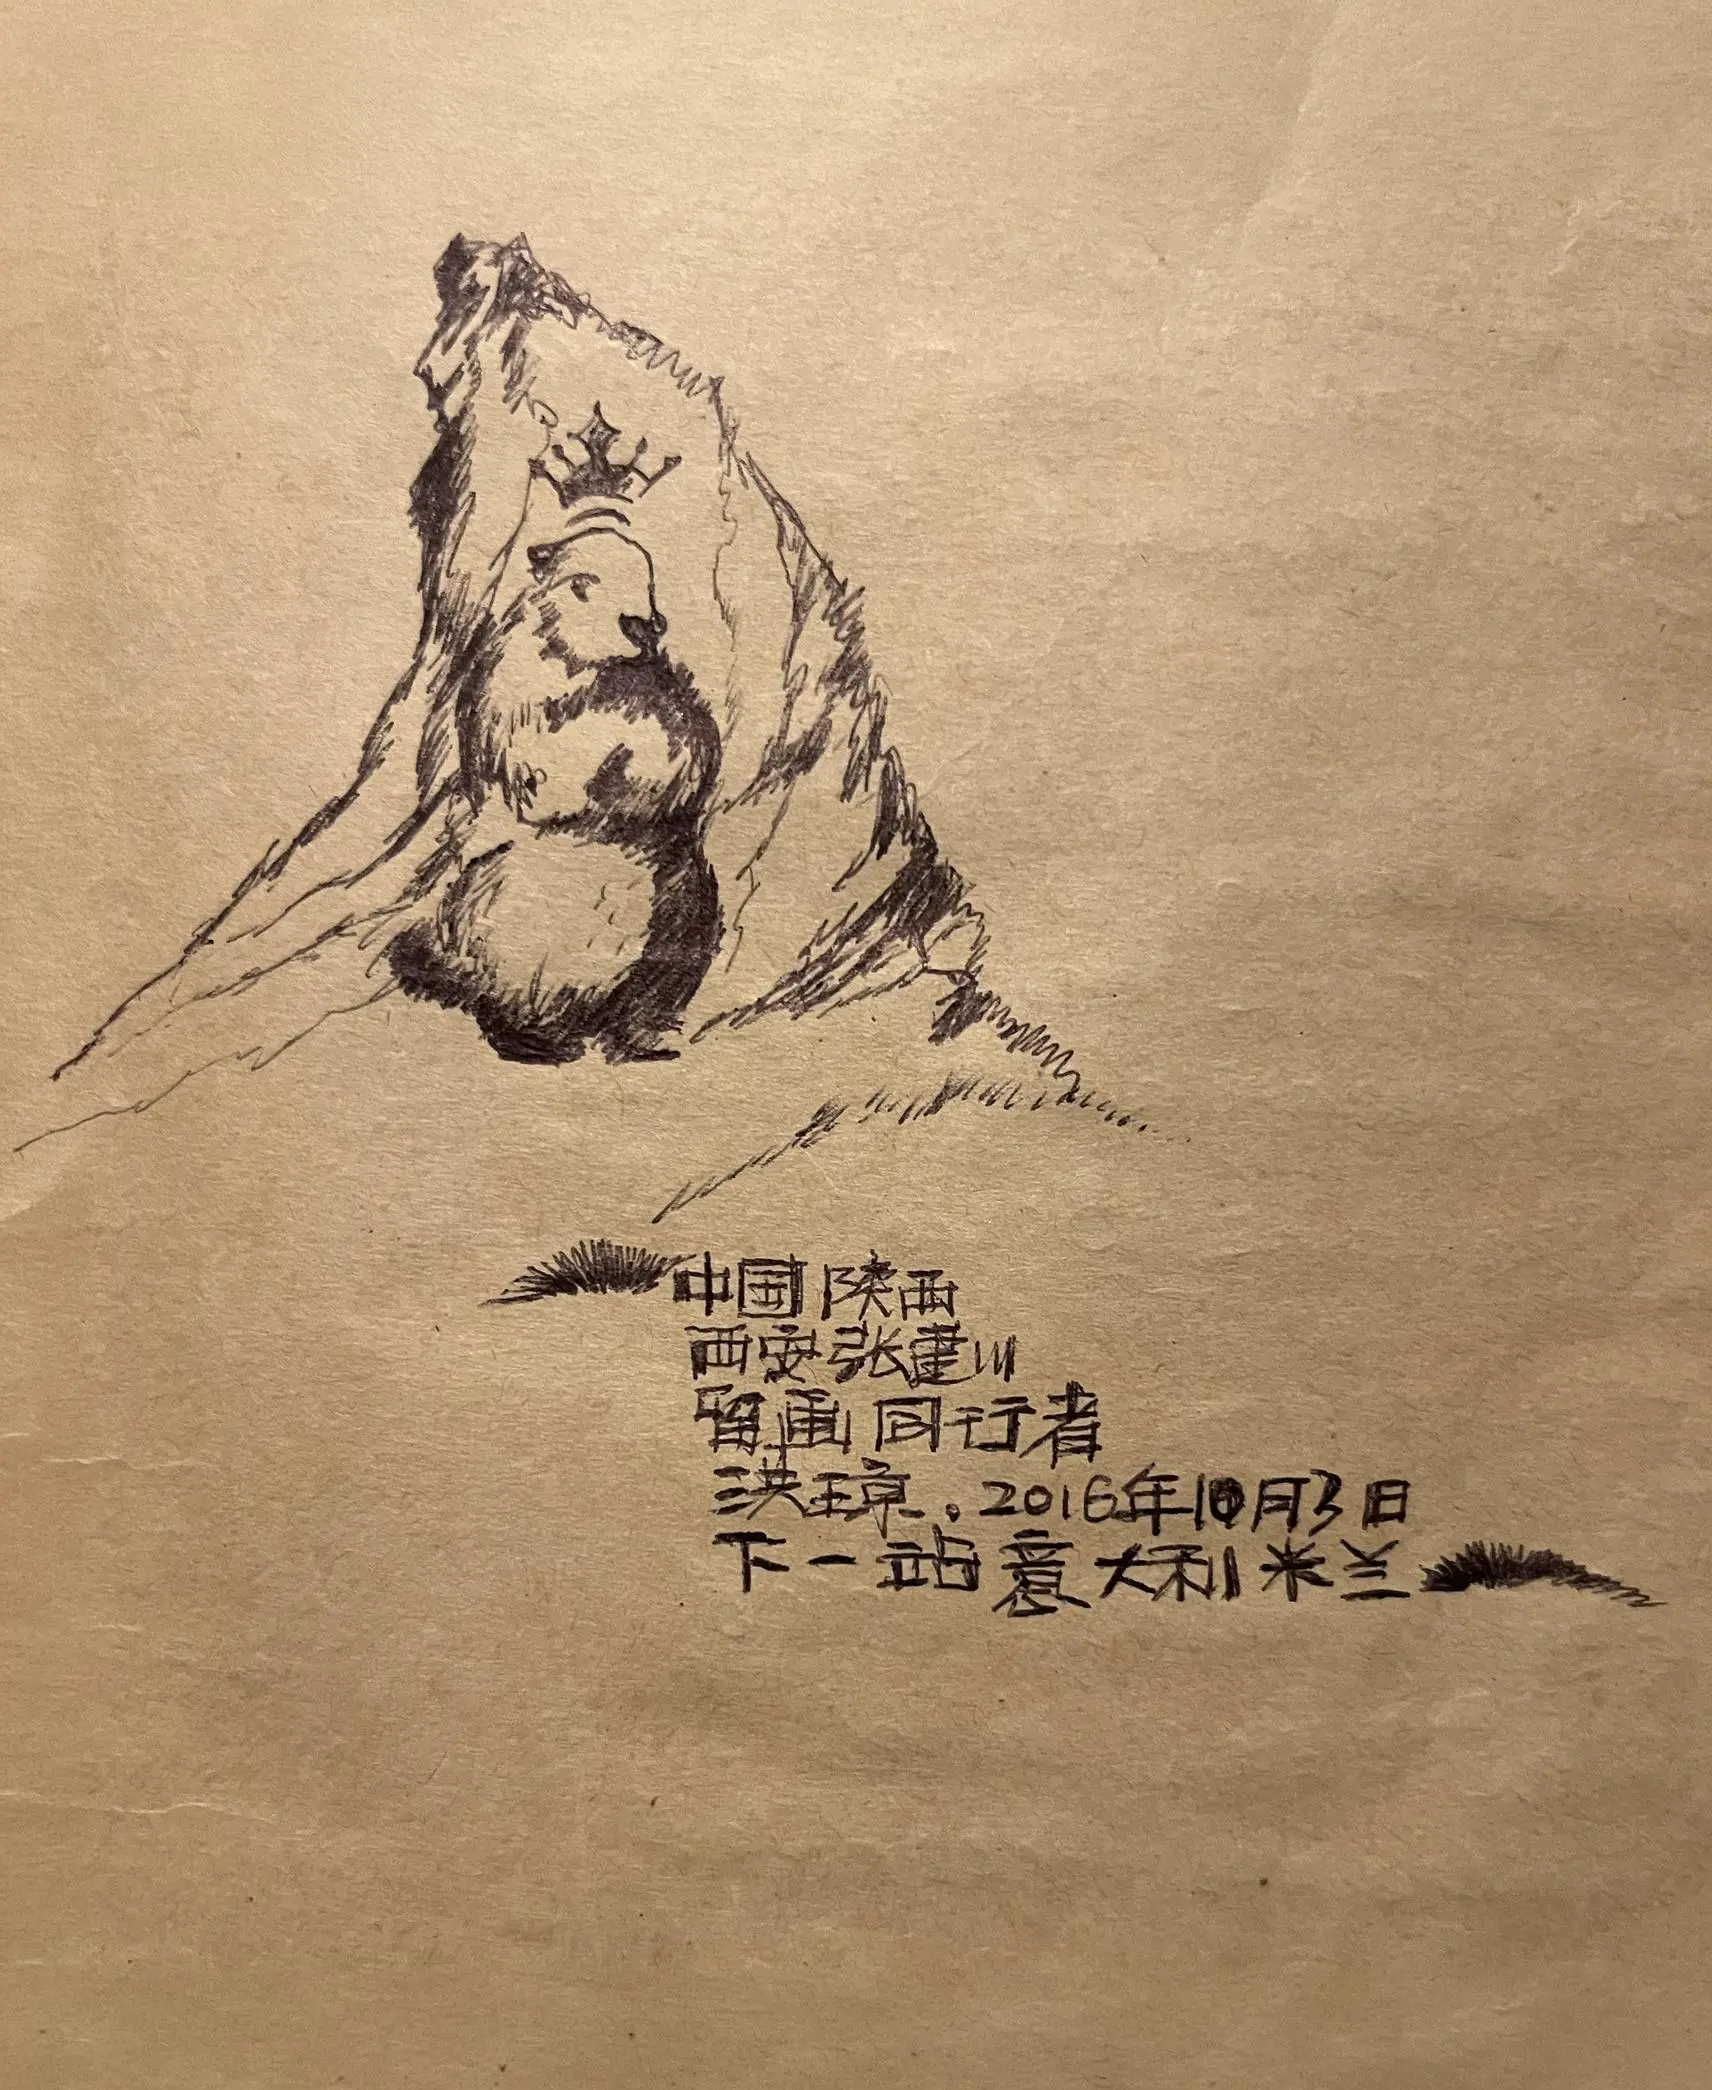 中国陕西
西安张建川
留画同行者
洪琼.2016年10月3日
下一站意大利米兰